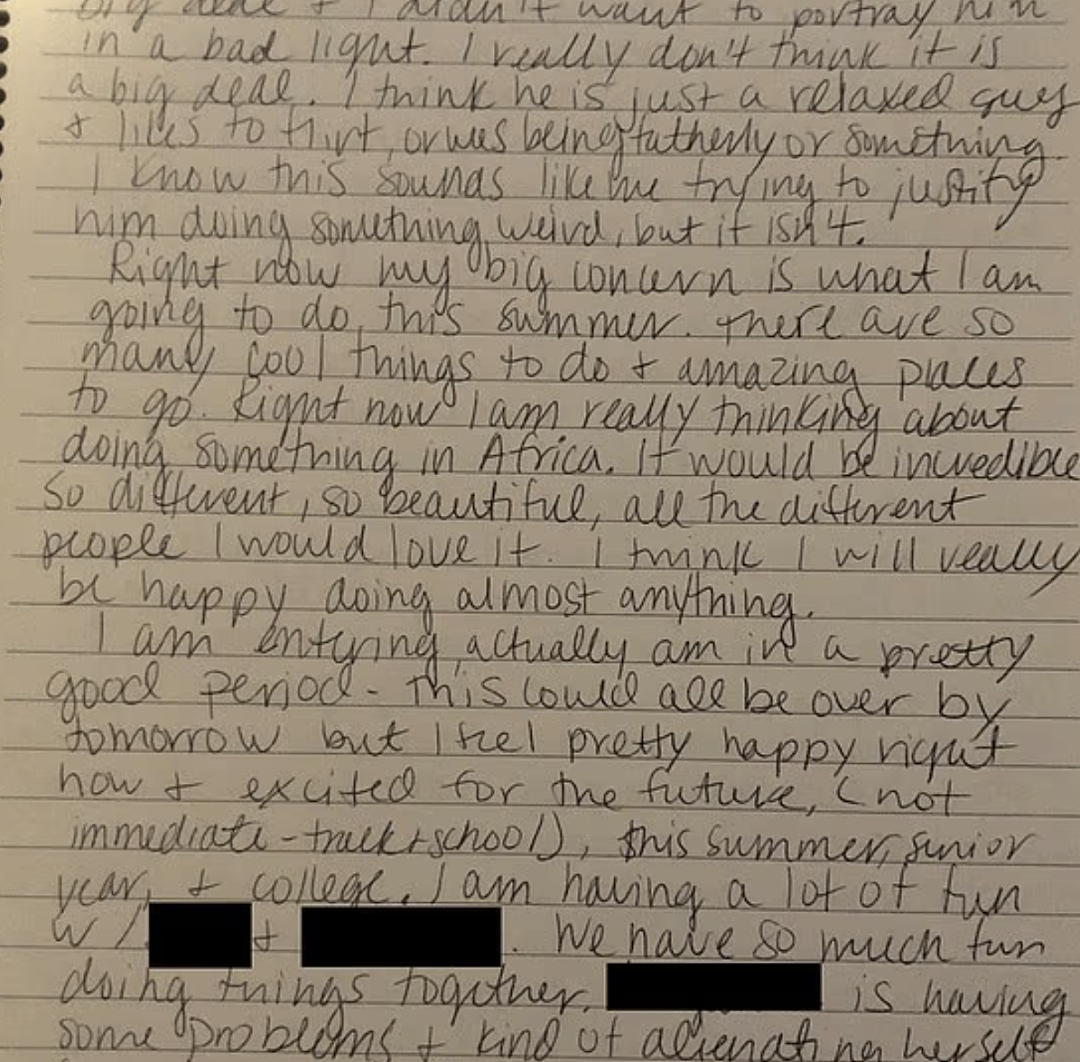 big deal + I didn't want to portray him
in a bad light. I really don't think it is
a big deal. I think he is just a relaxed guy
+ likes to flirt, or was being fatherly or something.
I know this sounds like me trying to justify
him doing something weird, but it isn't.
Right now my big concern is what I am
going to do this summer. There are so
many cool things to do + amazing places
to go. Right now I am really thinking about
doing something in Africa. It would be incredible
so different, so beautiful, all the different
people I would love it. I think I will really
be happy doing almost anything.
I am entering, actually am in a pretty
good period - this could all be over by
tomorrow but I feel pretty happy right
now + excited for the future, (not
immediate - track + school), this summer, senior
year, + college. I am having a lot of fun
w/ + . We have so much fun
doing things together. is having
some problems + kind of alienating herself